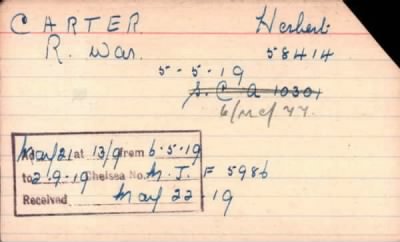 CARTER Herbert
R. War. 58414
5.5.19
S. C. A 10301
6/MC/77.
Award at 13/9 from 6.5.19
to 2.9.19 Chelsea No. M.J. F 5986
Received May 22 19